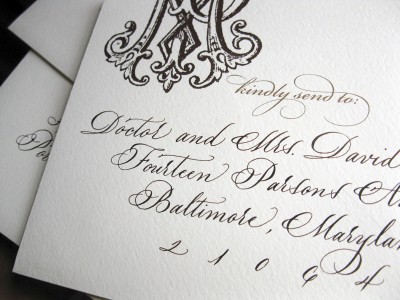 kindly send to:
Doctor and Mrs. David
Fourteen Parsons
Baltimore, Maryland
21064